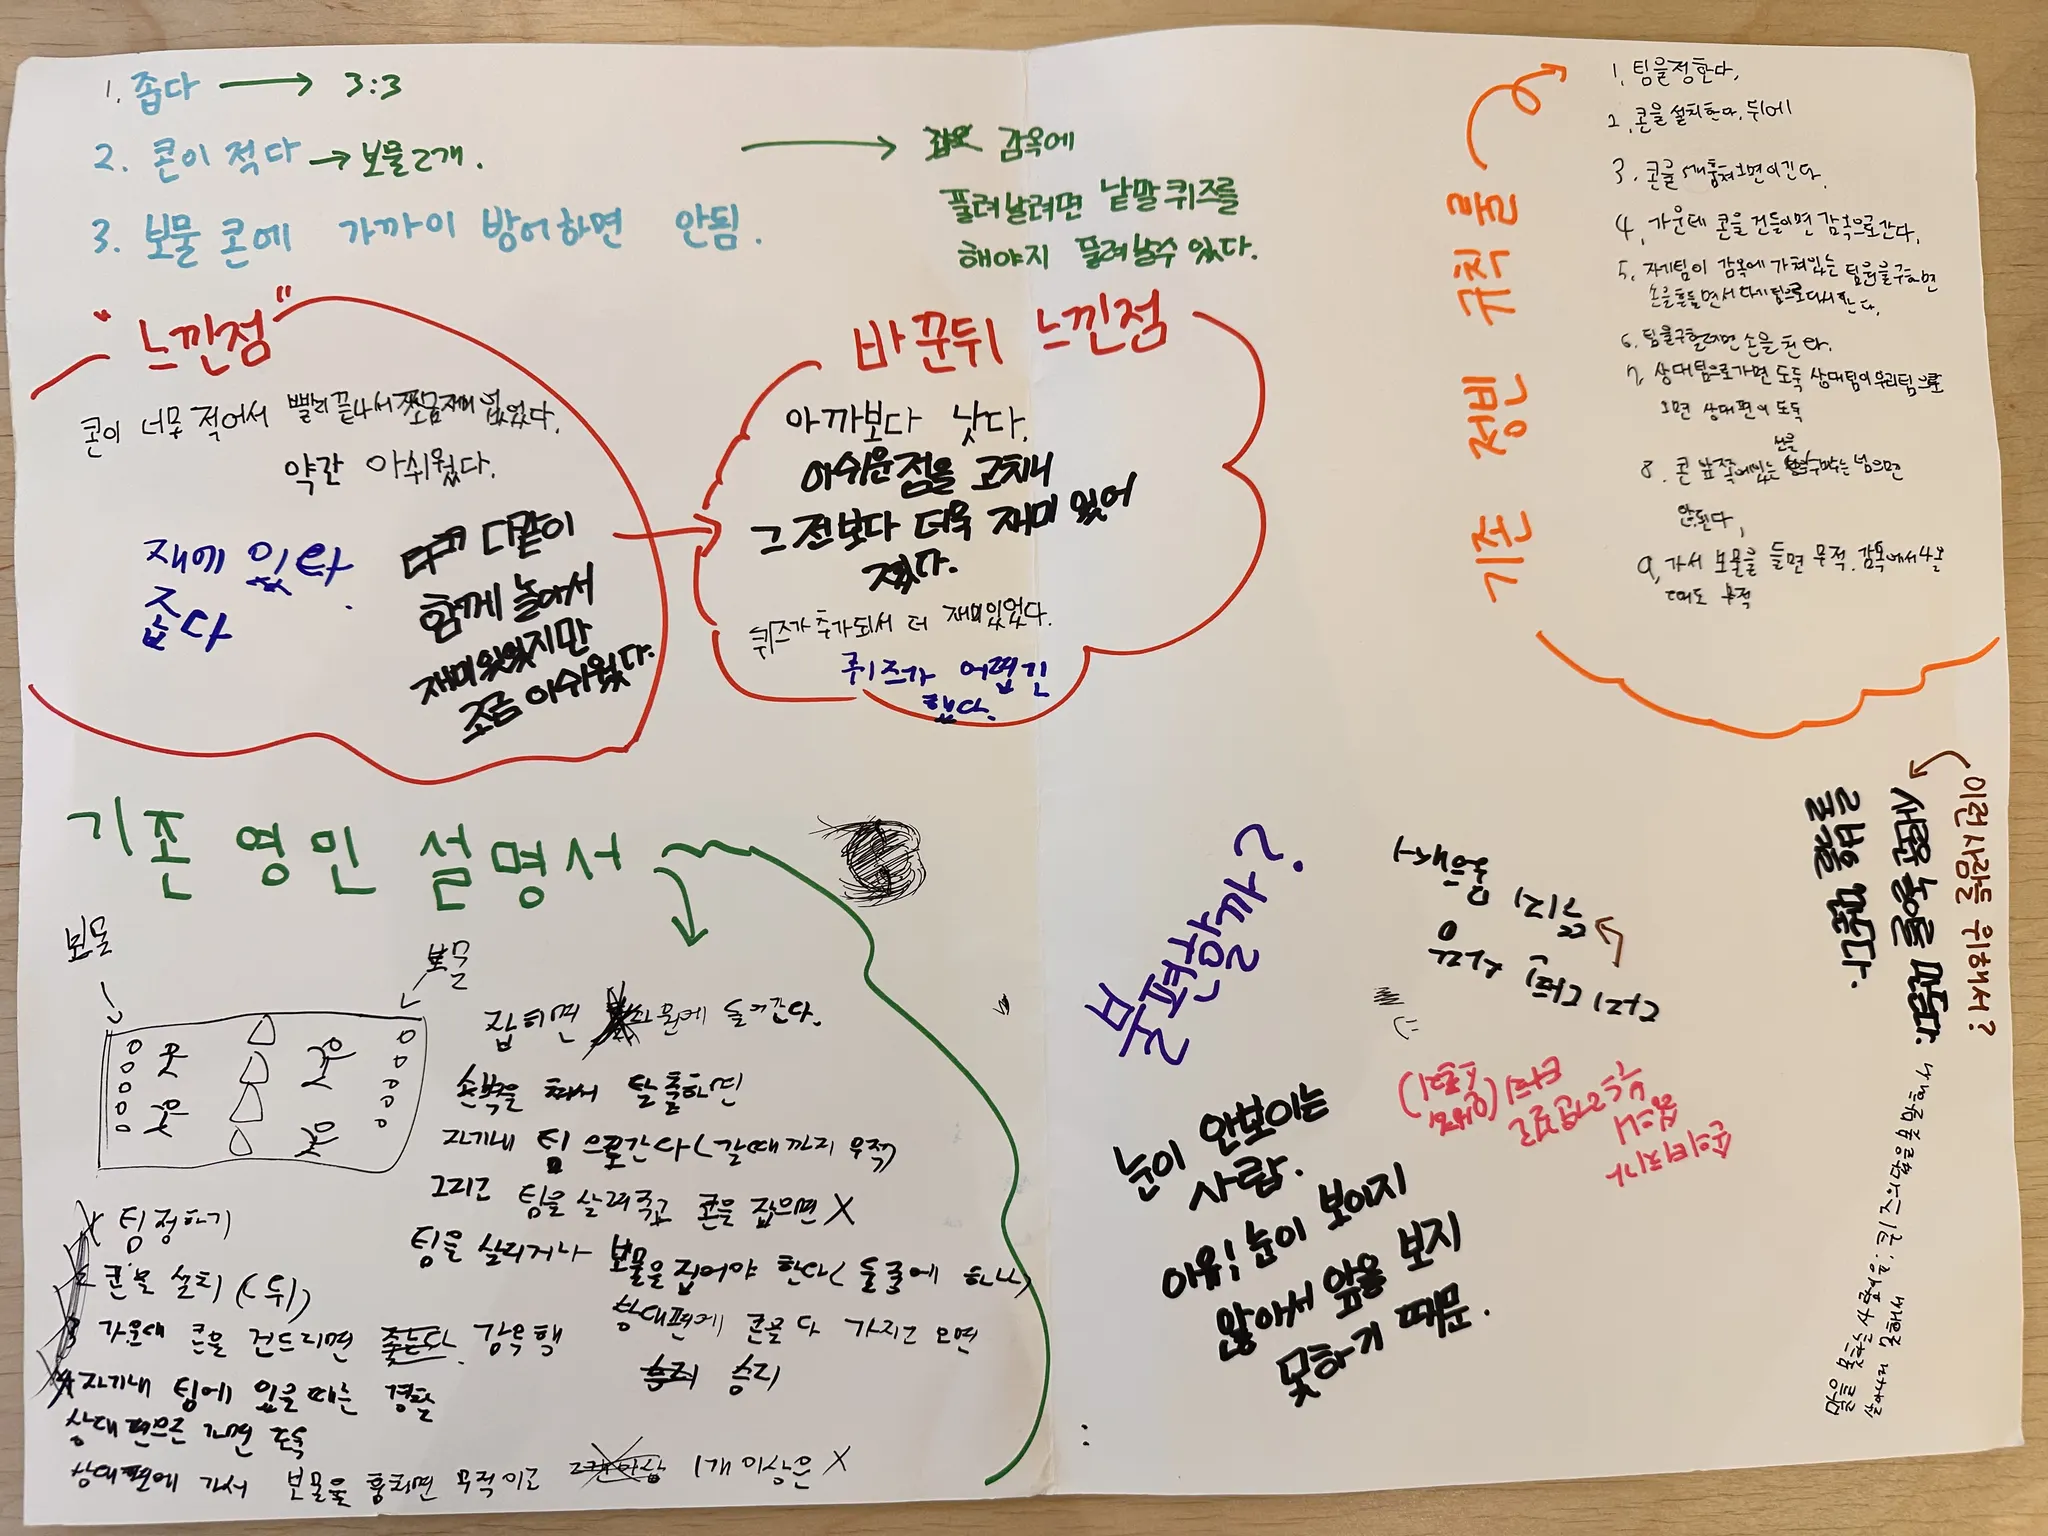 1. 좁다 → 3:3
2. 콘이 적다 → 보물2개.
3. 보물 콘에 가까이 방어하면 안됨.
→ 감옥에
풀려날려면 낱말퀴즈를
해야지 풀려날수있다.
"느낀점"
콘이 너무 적어서 빨리끝나서 쪼금재미없었다.
약간 아쉬웠다.
재에 있다.
좁다
다같이
함께 놀아서
재미있었지만
조금 아쉬웠다.
바꾼뒤 느낀점
아까보다 낫다.
아쉬운점을 고치니
그 전보다 더욱 재미있어
졌다.
퀴즈가 추가되서 더 재미있었다.
퀴즈가 어렵긴
했다.
기존 정빈 규칙 룰
1. 팀을정한다.
2. 콘을 설치한다. 뒤에
3. 콘을 5개훔쳐오면이긴다.
4. 가운테 콘을 건들이면 감옥으로간다.
5. 자기팀이 감옥에 가쳐있는 팀원을구하면
손을흔들면서 자기팀으로다시한다.
6. 팀을구할려면 손을 친다.
7. 상대팀으로가면 도둑 상대팀이우리팀으로
오면 상대편이 도둑
선을
8. 콘 앞쪽에있는 넘으면
안된다.
9. 가서 보물을 들면 무적. 감옥에서나올
때도 무적
기존 영민 설명서
보물
보물
팀정하기
2 콘을 설치 (뒤)
3 가운데 콘을 건드리면 감옥행
4 자기내 팀에 있을때는 경찰
상대편으로 가면 도둑
상대편에 가서 보물을 훔치면 무적이로 1개이상은 X
잡히면 감원에 들어간다.
손뼉을 쳐서 탈출하면
자기내 팀으로간다(갈때까지 무적)
그리고 팀을 살려주고 콘을 잡으면 X
팀을 살리거나 보물을집어야 한다(둘중에 하나)
상대편에 콘을 다 가지고 오면
승리
불편할까?
눈이 안보이는
사람.
이유! 눈이 보이지
않아서 앞을 보지
못하기 때문.
다리 다친 사람
이런사람들 위해서?
새로운 놀이를 만든다.
룰을 바꾼다.
말을 못하는사람이유: 퀴즈의답을말을못해서